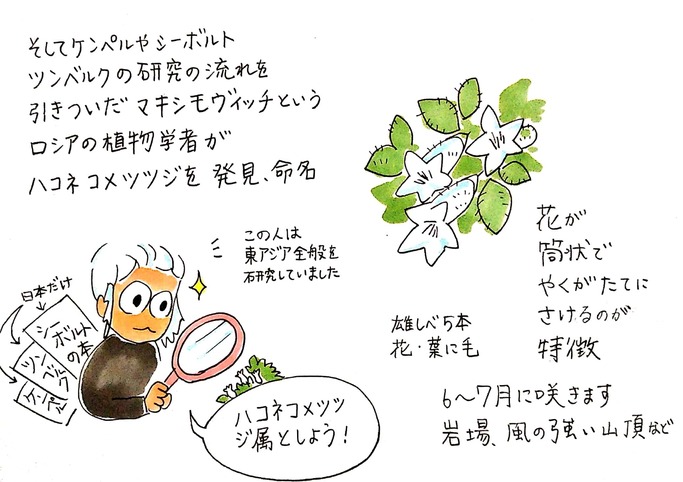 そしてケンペルやシーボルト
ツンベルクの研究の流れを
引きついだ マキシモヴィッチという
ロシアの植物学者が
ハコネコメツツジを 発見、命名
この人は
東アジア全般を
研究していました
日本だけ
シーボルト
の本
ツンベルク
ケンペル
ハコネコメツツ
ジ属としよう！
花が
筒状で
やくがたてに
さけるのが
特徴
雄しべ5本
花・葉に毛
6～7月に咲きます
岩場、風の強い山頂など